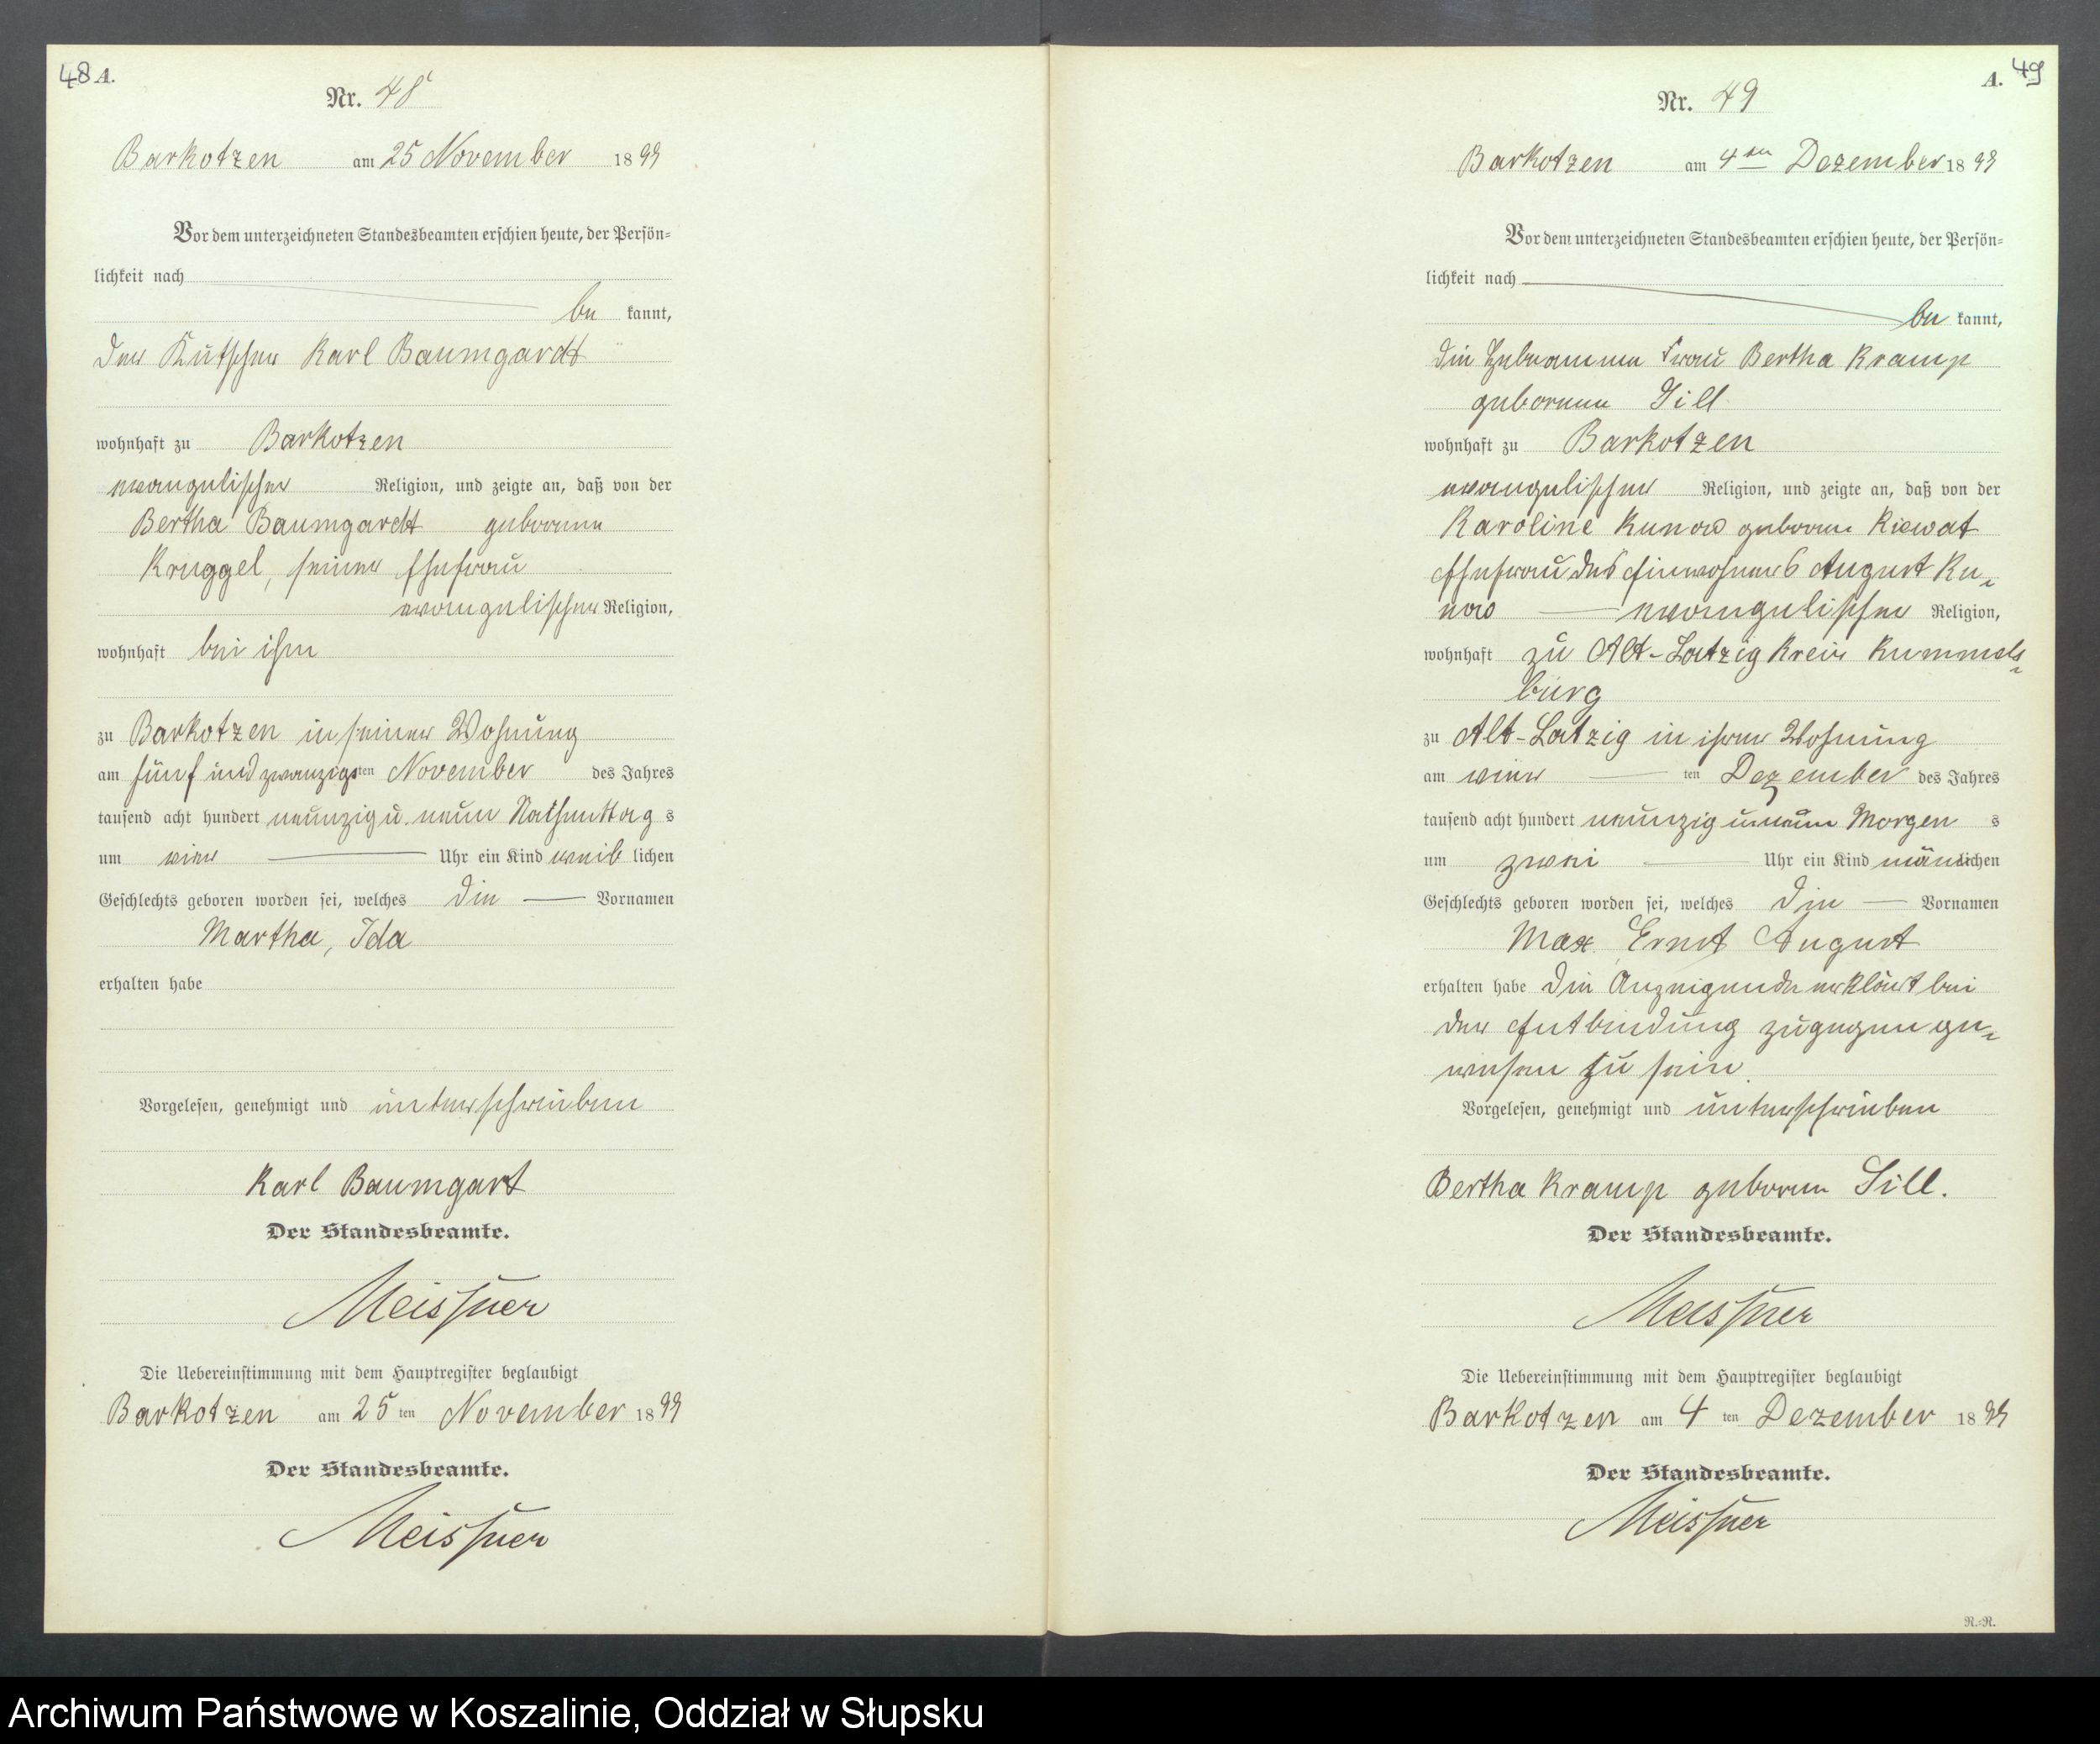 48 A.
Nr. 48
Barkotzen am 25 November 1899
Vor dem unterzeichneten Standesbeamten erschien heute, der Persön=
lichkeit nach
be kannt,
der Kutscher Karl Baumgardt
wohnhaft zu Barkotzen
evangelischer Religion, und zeigte an, daß von der
Bertha Baumgardt geborene
Kruggel, seiner Ehefrau
evangelischer Religion,
wohnhaft bei ihm
zu Barkotzen in seiner Wohnung
am fünf und zwanzigsten November des Jahres
tausend acht hundert neunzig u. neun Nachmittag s
um vier Uhr ein Kind weib lichen
Geschlechts geboren worden sei, welches die Vornamen
Martha, Ida
erhalten habe
Vorgelesen, genehmigt und unterschrieben
Karl Baumgart
Der Standesbeamte.
Meissner
Die Uebereinstimmung mit dem Hauptregister beglaubigt
Barkotzen am 25 ten November 1899
Der Standesbeamte.
Meissner
A. 49
Nr. 49
Barkotzen am 4ten Dezember 1899
Vor dem unterzeichneten Standesbeamten erschien heute, der Persön=
lichkeit nach
be kannt,
die Hebeamme Frau Bertha Kramp
geborene Sill
wohnhaft zu Barkotzen
evangelischer Religion, und zeigte an, daß von der
Karoline Kunow geborene Kiewat
Ehefrau des Einwohners August Ku=
now evangelischer Religion,
wohnhaft zu Alt-Latzig Kreis Rummels=
burg
zu Alt-Latzig in ihrer Wohnung
am vier ten Dezember des Jahres
tausend acht hundert neunzig u. neun Morgen s
um zwei Uhr ein Kind mänlichen
Geschlechts geboren worden sei, welches die Vornamen
Max Ernst August
erhalten habe Die Anzeigende erklärt bei
der Entbindung zugegen ge=
wesen zu sein.
Vorgelesen, genehmigt und unterschrieben
Bertha Kramp geborene Sill.
Der Standesbeamte.
Meissner
Die Uebereinstimmung mit dem Hauptregister beglaubigt
Barkotzen am 4 ten Dezember 1899
Der Standesbeamte.
Meissner
R.=R.
Archiwum Państwowe w Koszalinie, Oddział w Słupsku